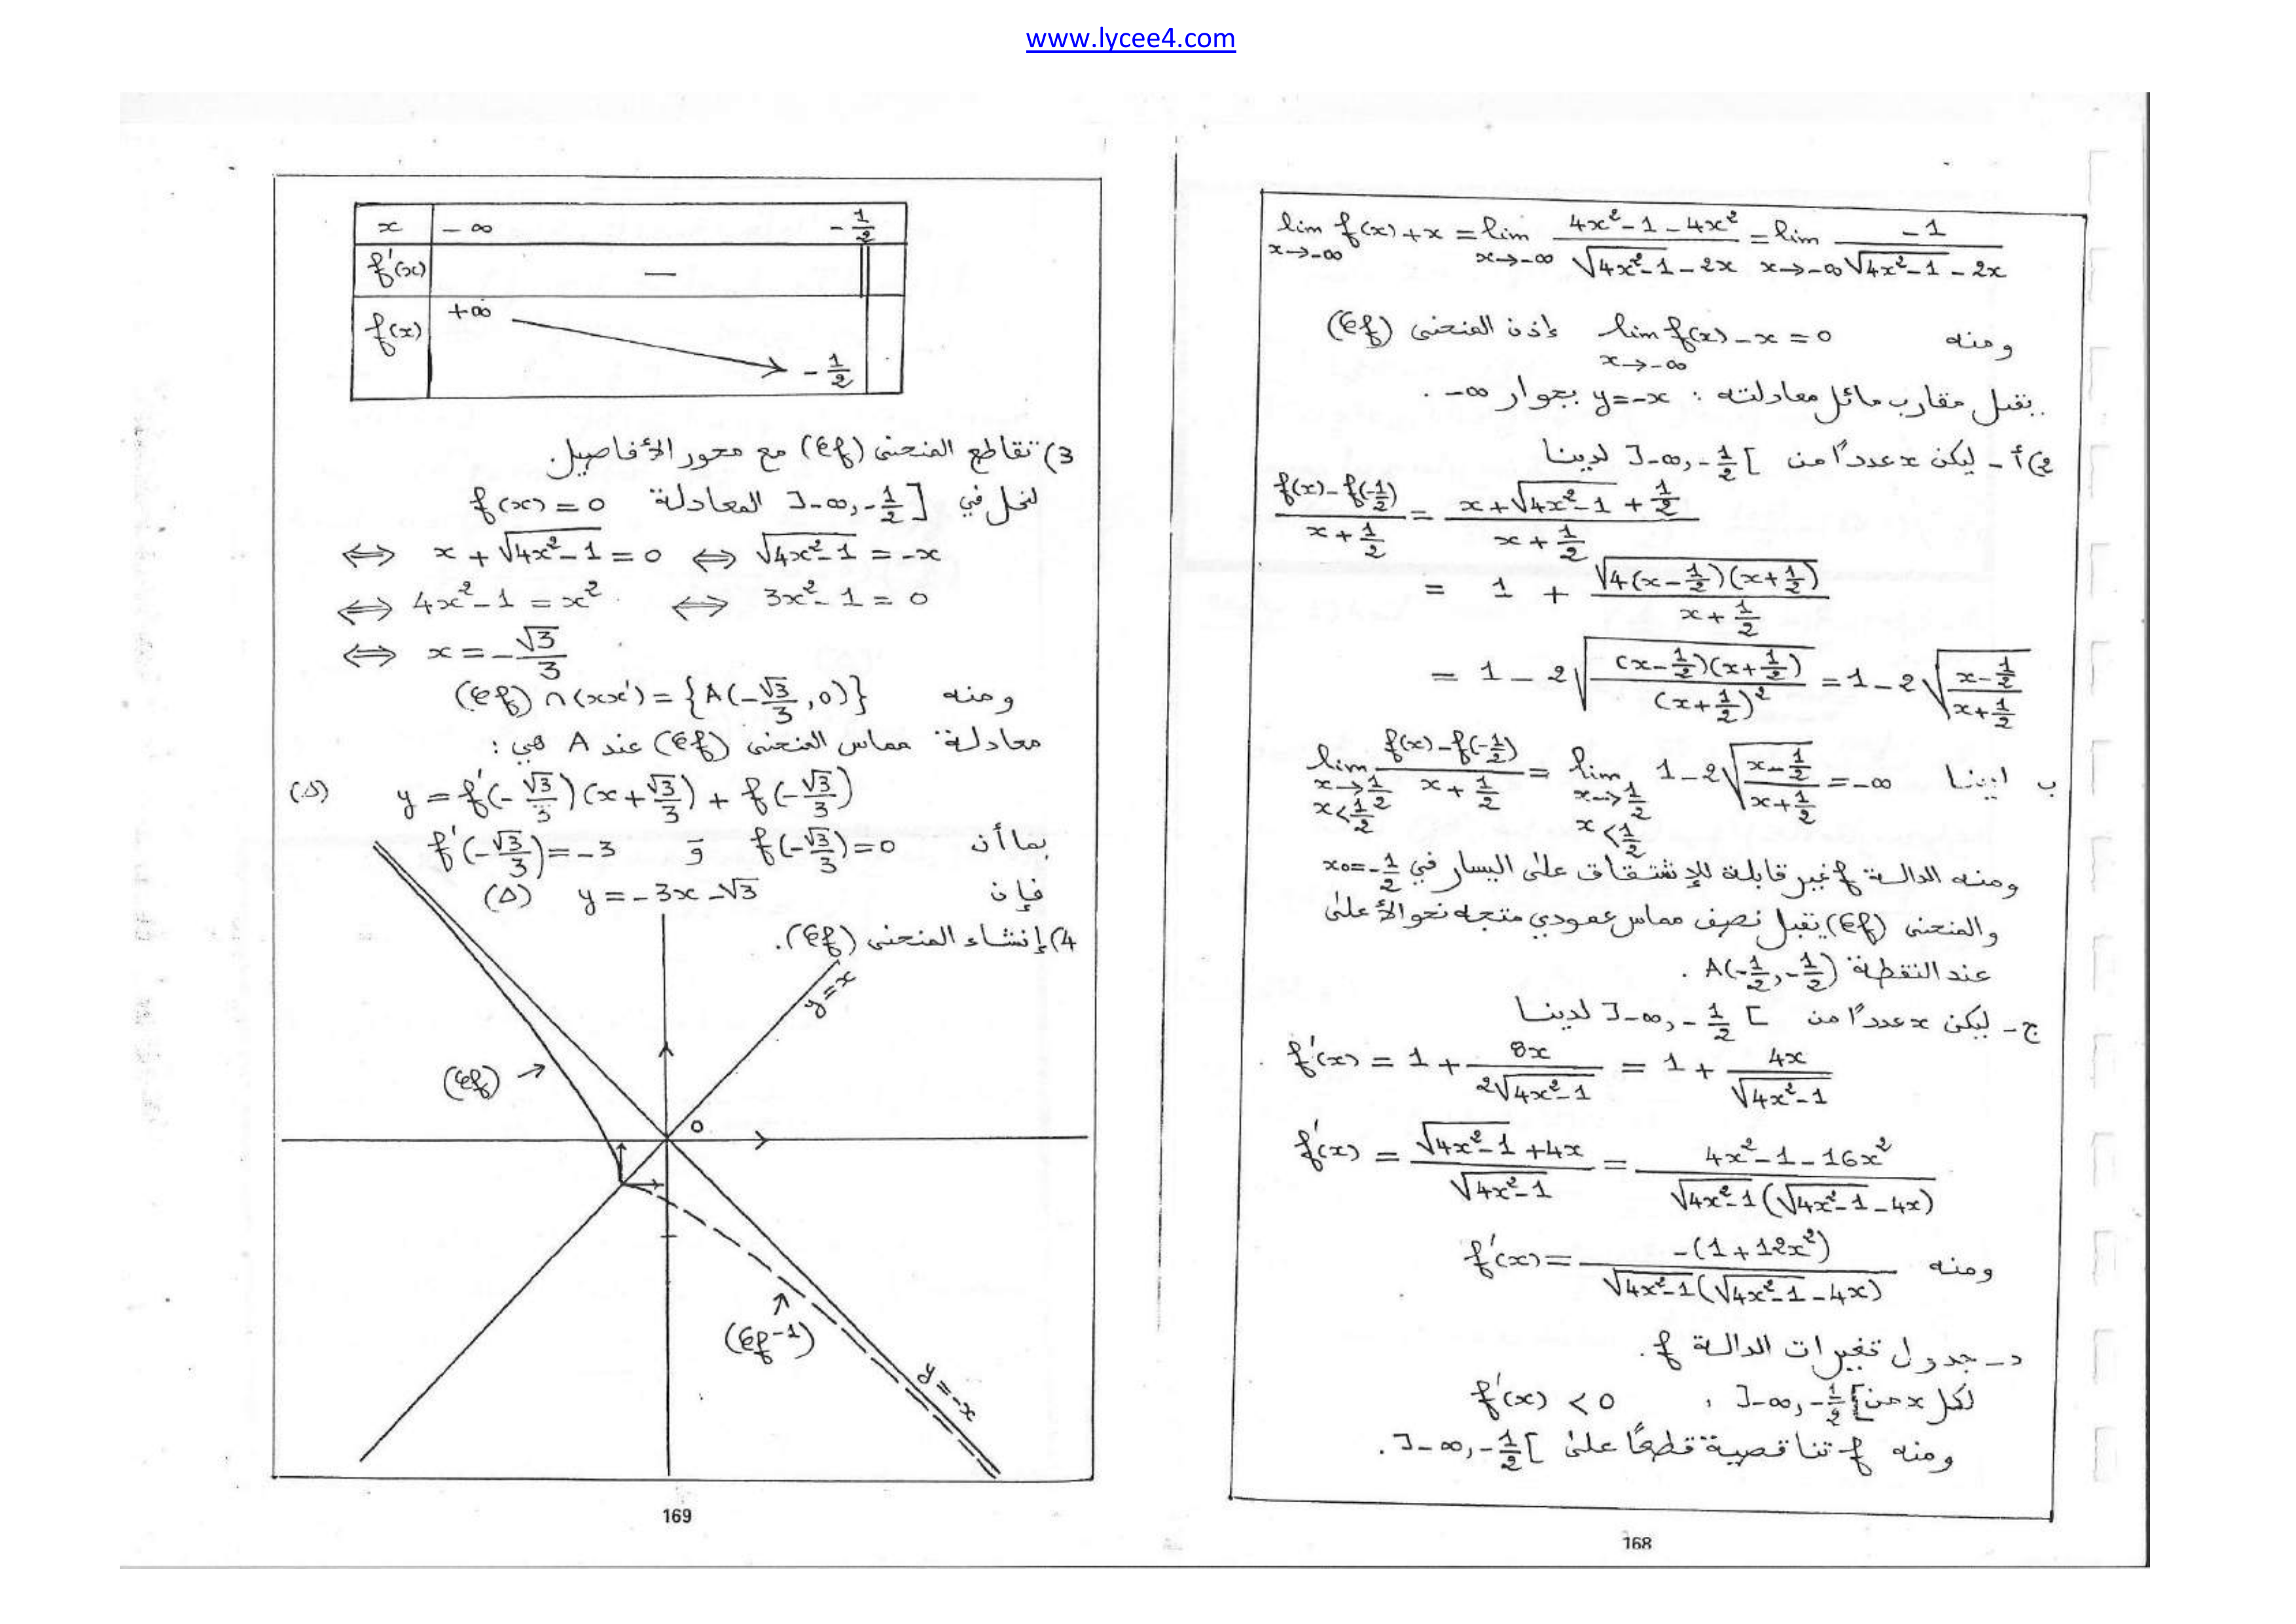 www.lycee4.com
lim f(x)+x = lim (4x²-1-4x²)/(√(4x²-1) - 2x) = lim -1/(√(4x²-1) - 2x)
x→-∞ x→-∞ x→-∞
ومنه lim f(x)-x = 0 إذن المنحنى (Cf)
x→-∞
يقبل مقارب مائل معادلته : y=-x بجوار -∞ .
2) أ - ليكن x عددًا من ]-∞, -1/2[ لدينا
(f(x)-f(-1/2))/(x+1/2) = (x+√(4x²-1)+1/2)/(x+1/2)
= 1 + √(4(x-1/2)(x+1/2))/(x+1/2)
= 1 - 2√((x-1/2)(x+1/2)/(x+1/2)²) = 1-2√((x-1/2)/(x+1/2))
ب لدينا lim (f(x)-f(-1/2))/(x+1/2) = lim 1-2√((x-1/2)/(x+1/2)) = -∞
x→1/2 x→1/2
x<1/2 x<1/2
ومنه الدالة f غير قابلة للإشتقاق على اليسار في x0=-1/2
والمنحنى (Cf) يقبل نصف مماس عمودي متجه نحو الأعلى
عند النقطة A(-1/2, -1/2) .
ج - ليكن x عددًا من ]-∞, -1/2[ لدينا
f'(x) = 1 + 8x/(2√(4x²-1)) = 1 + 4x/√(4x²-1)
f'(x) = (√(4x²-1)+4x)/√(4x²-1) = (4x²-1-16x²)/(√(4x²-1)(√(4x²-1)-4x))
ومنه f'(x) = -(1+12x²)/(√(4x²-1)(√(4x²-1)-4x))
د - جدول تغيرات الدالة f .
لكل x من ]-∞, -1/2[ , f'(x) < 0
ومنه f تناقصية قطعًا على ]-∞, -1/2[ .
168
x -∞ -1/2
f'(x) —
f(x) +∞ -1/2
3) تقاطع المنحنى (Cf) مع محور الأفاصيل.
لنحل في ]-∞, -1/2] المعادلة f(x) = 0
⟺ x + √(4x²-1) = 0 ⟺ √(4x²-1) = -x
⟺ 4x²-1 = x² ⟺ 3x²-1 = 0
⟺ x = -√3/3
ومنه (Cf) ∩ (xx') = {A(-√3/3, 0)}
معادلة مماس المنحنى (Cf) عند A هي :
(Δ) y = f'(-√3/3)(x+√3/3) + f(-√3/3)
بما أن f(-√3/3)=0 و f'(-√3/3)=-3
فإن y = -3x-√3 (Δ)
4) إنشاء المنحنى (Cf).
y=x
(Cf)
O
(Cf-1)
y=-x
169